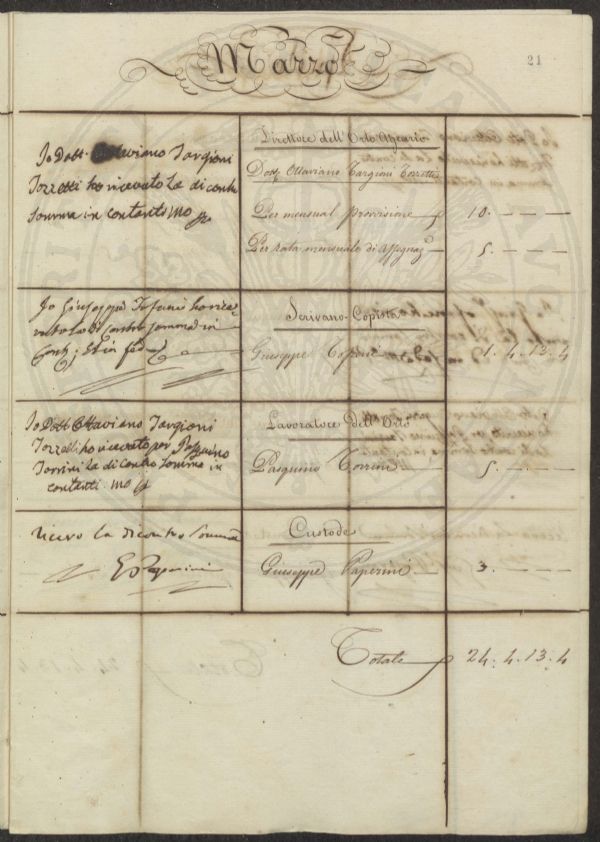 Marzo
21
Io Dott. Ottaviano Targioni
Tozzetti ho ricevuto la di contro
somma in contanti mo pp
Direttore dell'Orto Agrario
Dott. Ottaviano Targioni Tozzetti
Per mensual provisione 10. — — —
Per rata mensuale di Assegnaz.e 5. — — —
Io Giuseppe Tofani ho rice-
vuto la di contro somma in
Cont. Et in fede
Scrivano-Copista
Giuseppe Tofani 1. 4. 13. 4
Io Dott Ottaviano Targioni
Tozzetti ho ricevuto per Pasquino
Torrini la di contro somma in
contanti mo pp
Lavoratore dell'Orto
Pasquino Torrini 5. — — —
ricevo la di contro somma
G Paperini
Custode
Giuseppe Paperini 3. — — —
Totale 24. 4. 13. 4